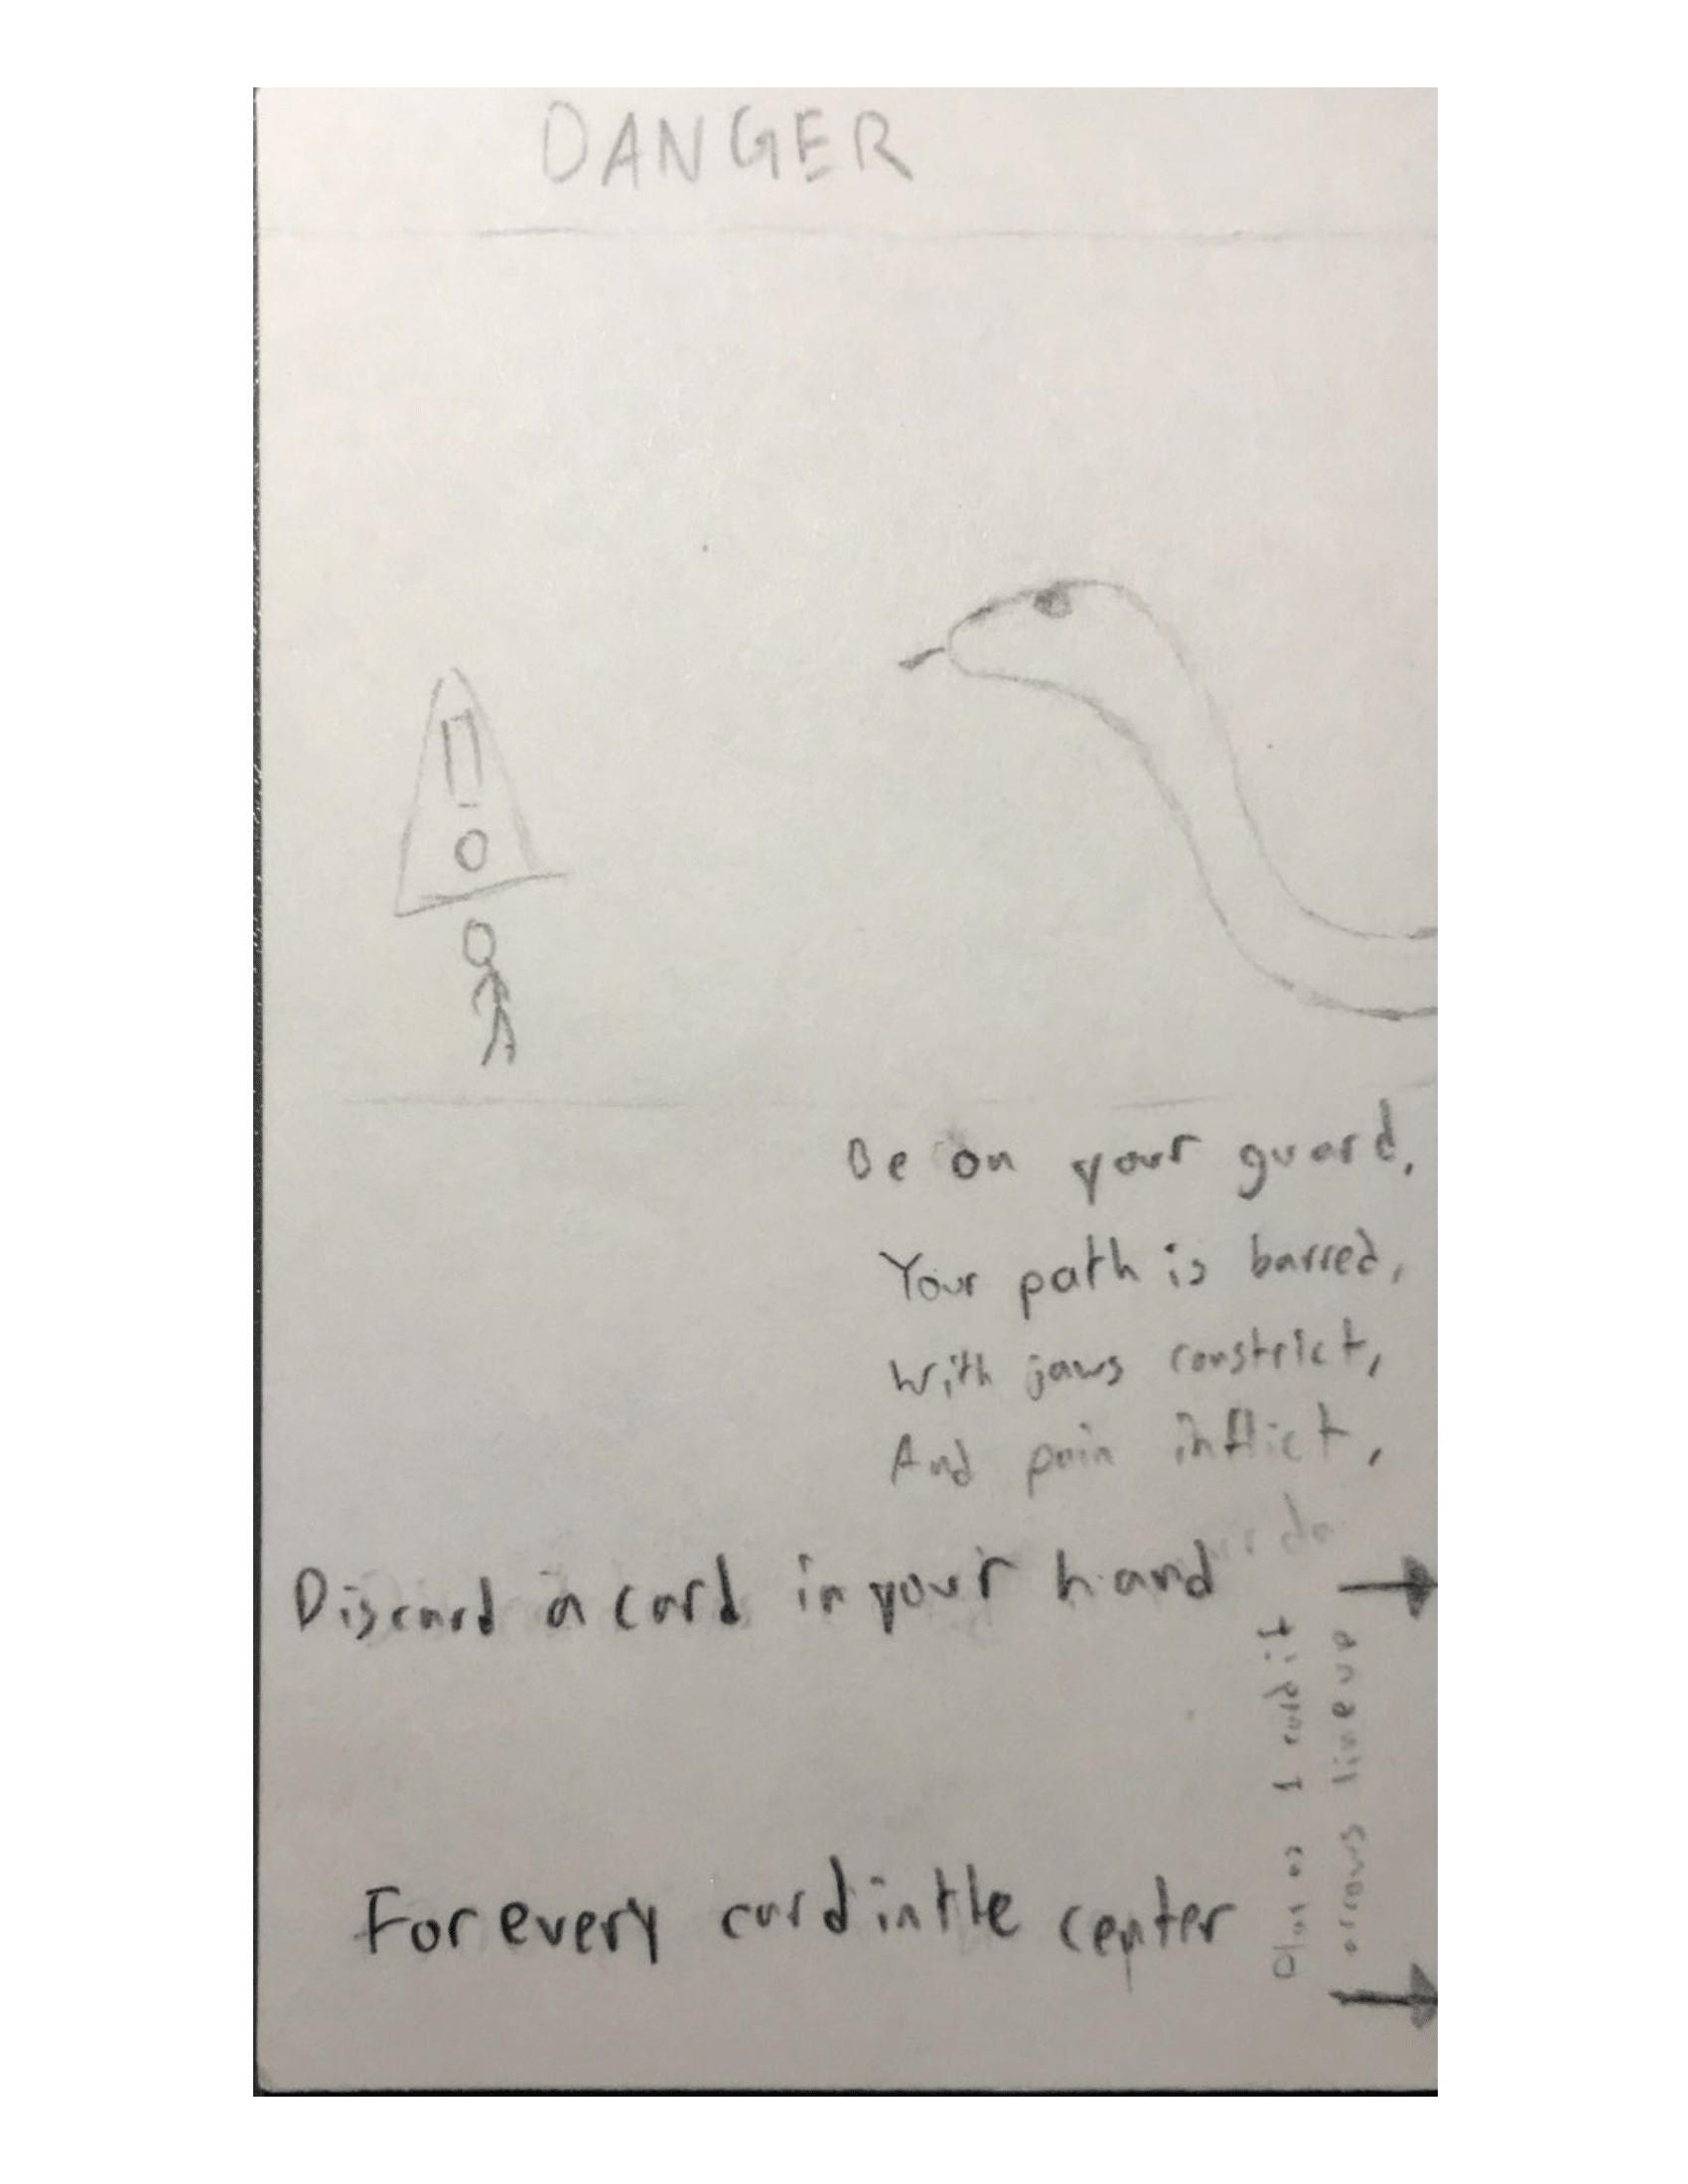 DANGER
!
Be on your guard,
Your path is barred,
With jaws constrict,
And pain inflict,
Discard a card in your hand
For every card in the center
Play as 1 card if
arrows line up